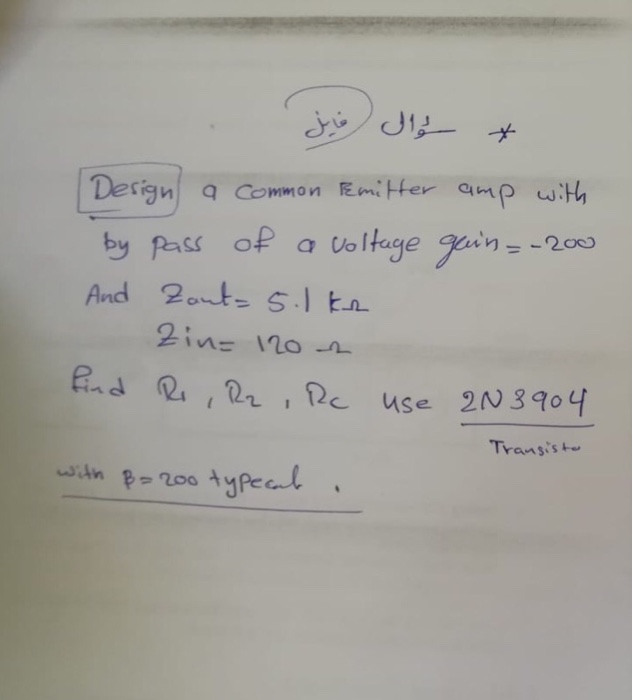 * سؤال فاينل
Design a common Emitter amp with
by pass of a voltage gain = -200
And Zout = 5.1 kΩ
Zin = 120 Ω
find R1, R2, Rc use 2N3904
Transistor
with β = 200 typecal.